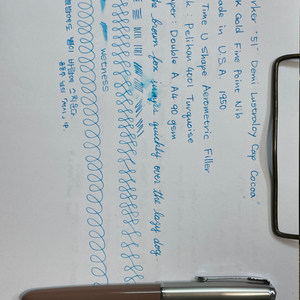 rker "51" Demi Lustraloy Cap "Cocoa"
K Gold Fine Point Nib
ade in U.S.A. 1950
Time U Shape Aerometric Filler
k : Pelikan 4001 Turquoise
per : Double A A4 90 gsm
he brown fox jumps quickly over the lazy dog
wetness
밤에도 별이 바람에 스치운다
윤동주 님의